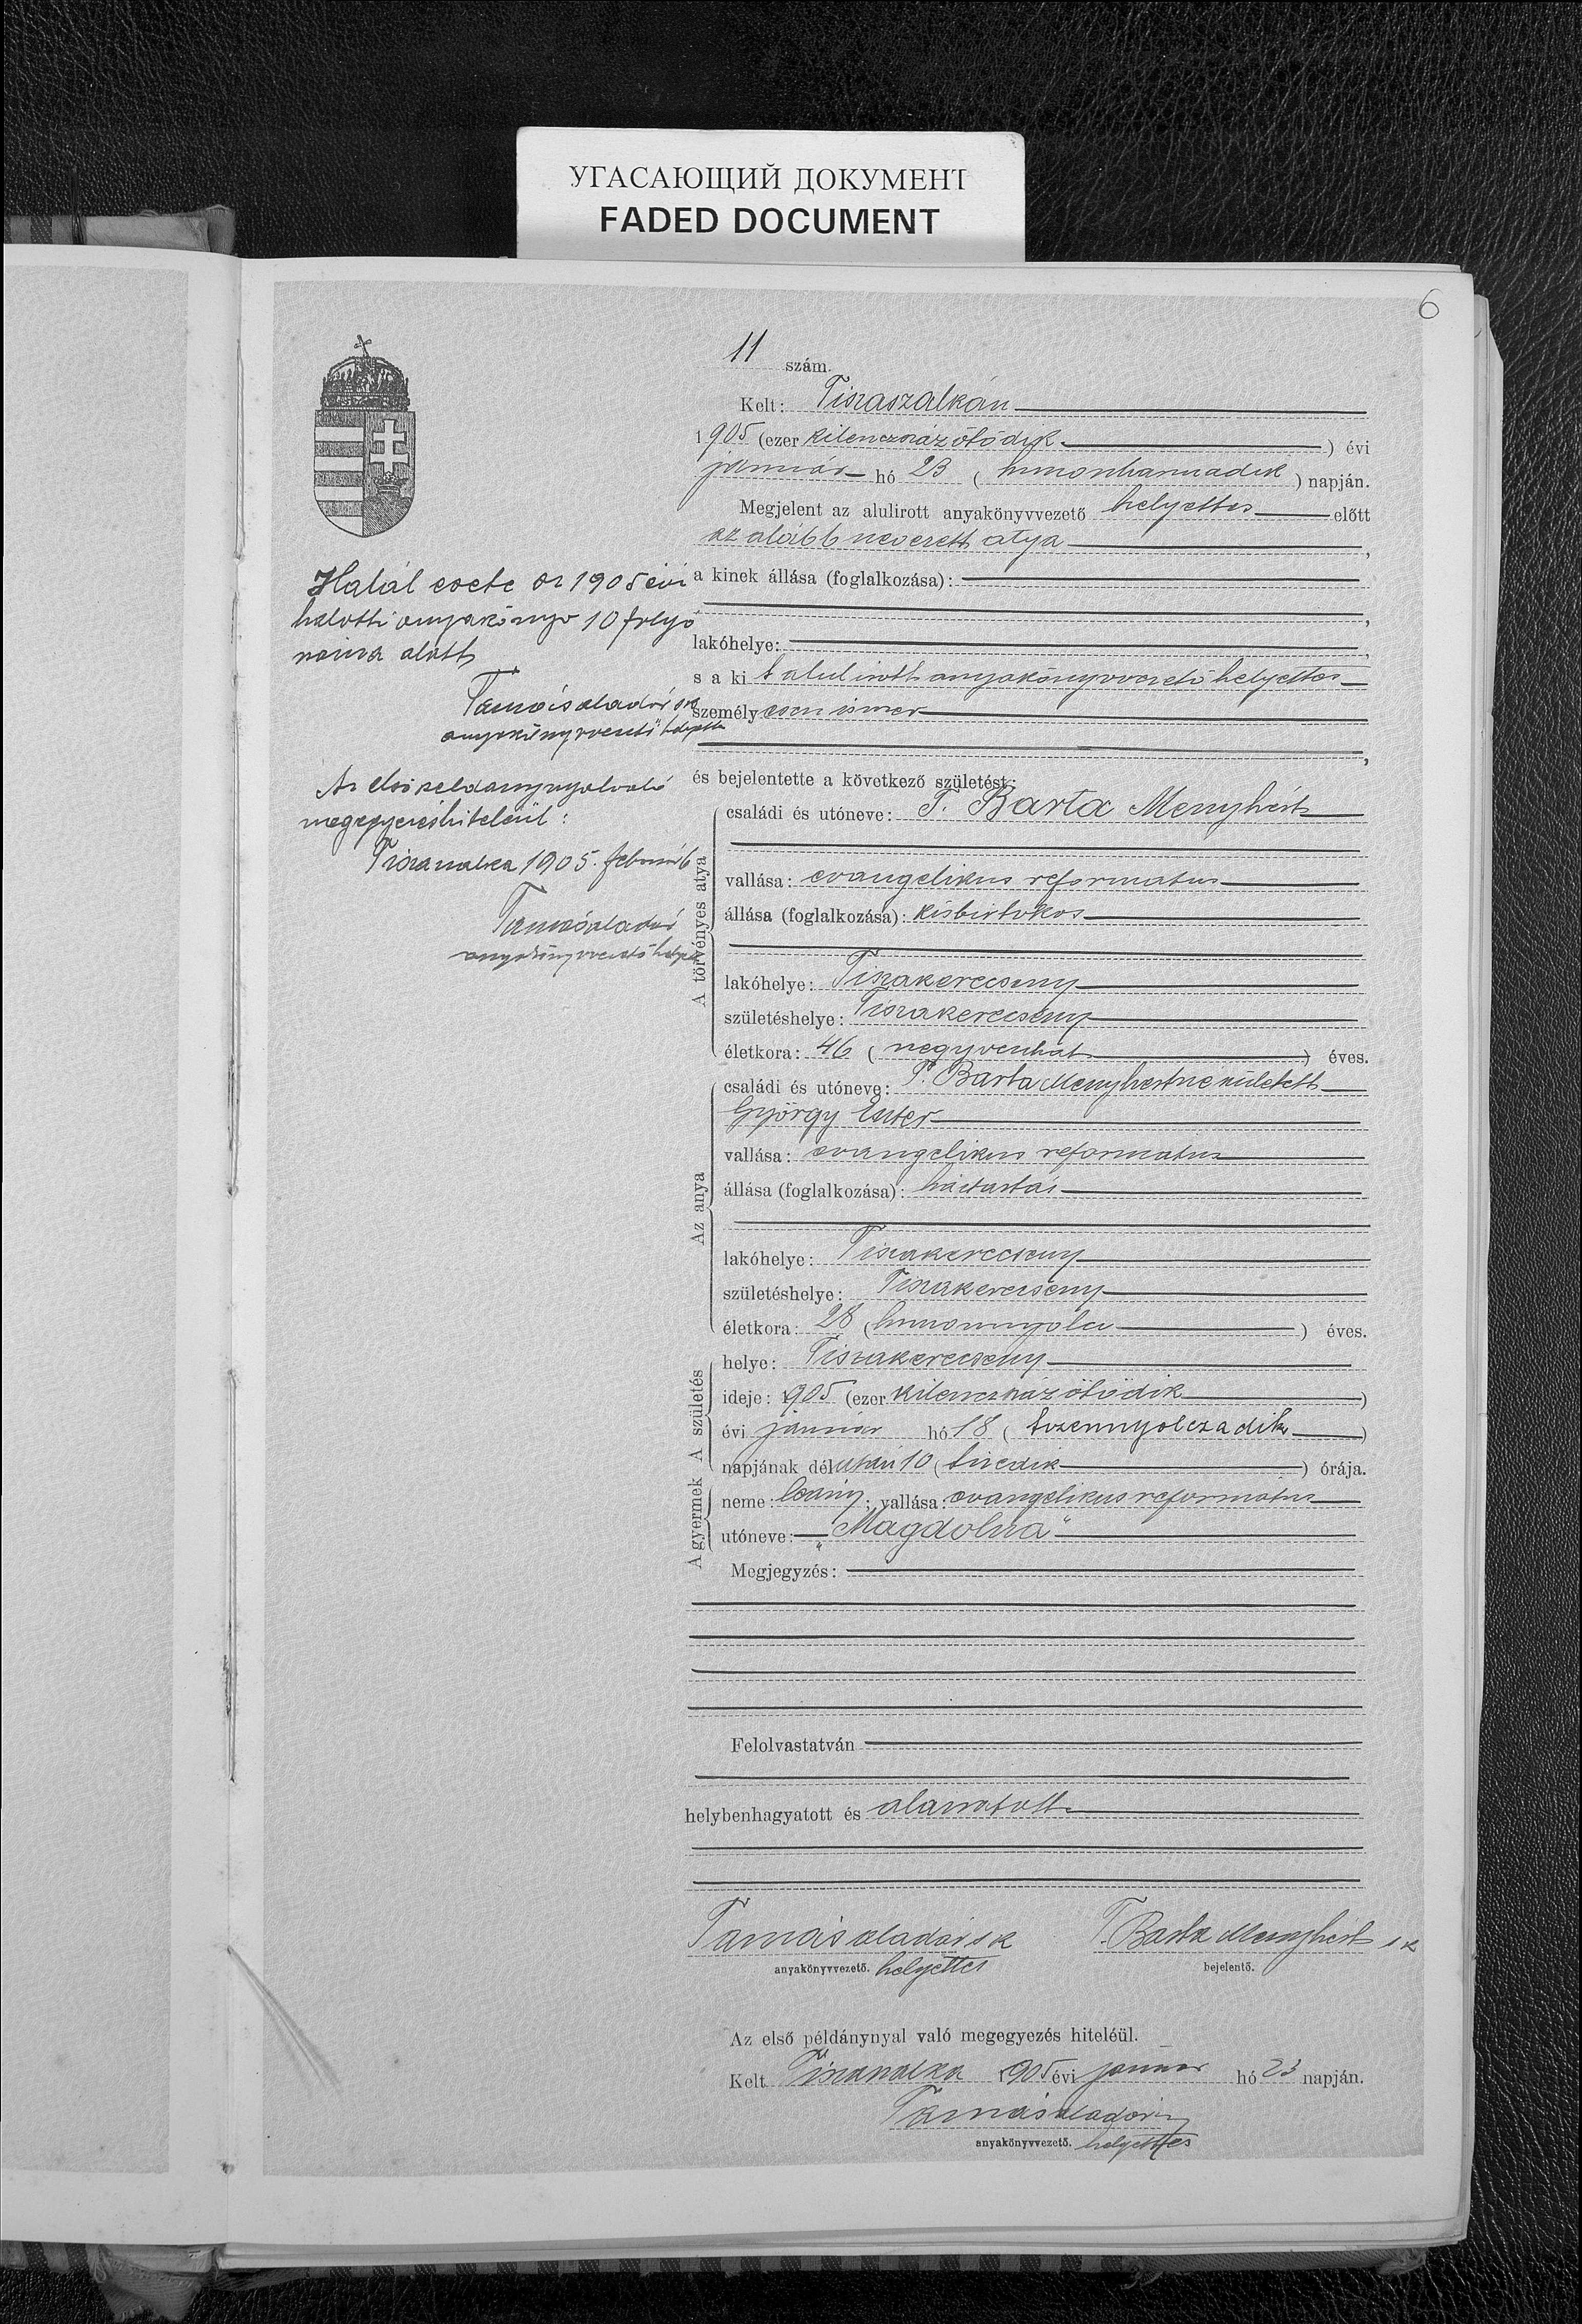 УГАСАЮЩИЙ ДОКУМЕНТ
FADED DOCUMENT
6
11 szám.
Kelt: Tiszaszalkán
1905 (ezer kilenczszáz ötödik) évi
január hó 23 (huszonharmadik) napján.
Megjelent az alulirott anyakönyvvezető helyettes előtt
az alább nevezett atya,
a kinek állása (foglalkozása):
lakóhelye:
s a ki t alulirott anyakönyvvezető helyettes
személyesen ismer
és bejelentette a következő születést:
A törvényes atya
családi és utóneve: T. Barta Menyhért
vallása: evangelikus reformatus
állása (foglalkozása): kisbirtokos
lakóhelye: Tiszakerecseny
születéshelye: Tiszakerecseny
életkora: 46 (negyvenhat) éves.
Az anya
családi és utóneve: T. Barta Menyhértné született
György Eszter
vallása: evangelikus reformatus
állása (foglalkozása): háztartás
lakóhelye: Tiszakerecseny
születéshelye: Tiszakerecseny
életkora: 28 (huszonnyolcz) éves.
A születés
helye: Tiszakerecseny
ideje: 1905 (ezer kilenczszáz ötödik)
évi január hó 18 (tizennyolczadik)
napjának délután 10 (tizedik) órája.
A gyermek
neme: leány; vallása: evangelikus reformatus
utóneve: „Magdolna"
Megjegyzés:
Felolvastatván
helybenhagyatott és aláiratott
Tamás Aladár sk T. Barta Menyhért sk
anyakönyvvezető. helyettes bejelentő.
Az első példánynyal való megegyezés hiteléül.
Kelt Tiszaszalka 1905 évi január hó 23 napján.
Tamás Aladár
anyakönyvvezető. helyettes
Halál esete az 1905 évi
halotti anyakönyv 10 folyó
száma alatt
Tamás Aladár sk
anyakönyvvezető helyettes
Az első példánynyal való
megegyezés hiteléül:
Tiszaszalka 1905. február 6
Tamás Aladár
anyakönyvvezető helyettes